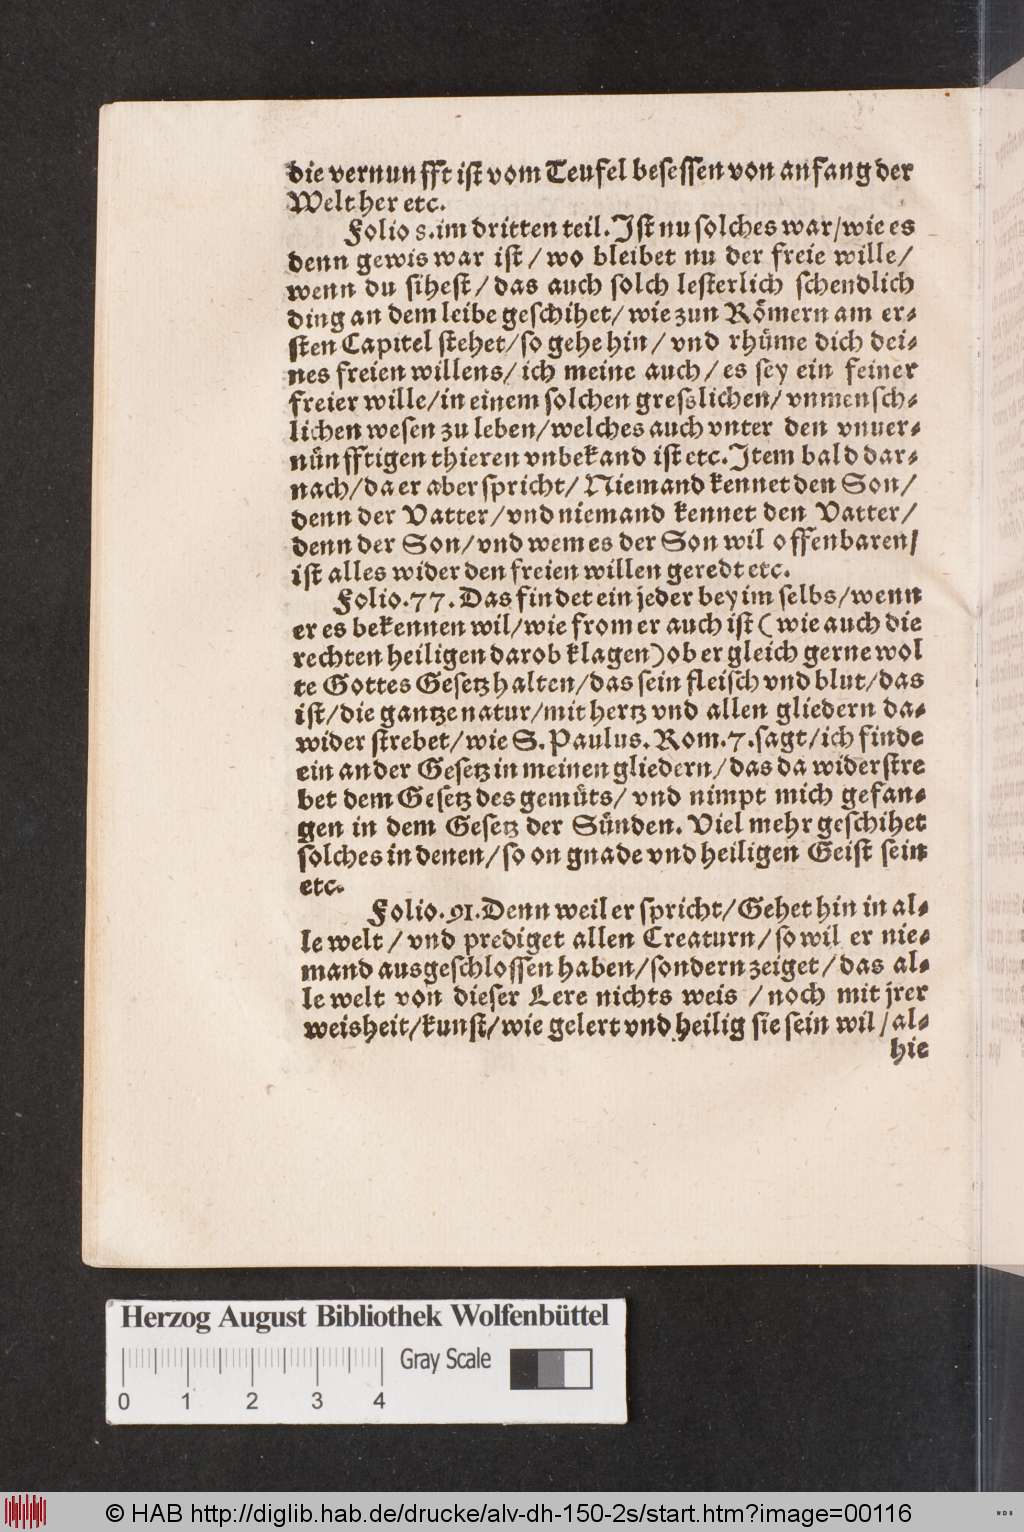 die vernunfft ist vom Teufel besessen von anfang der
Welt her etc.
Folio 8. im dritten teil. Ist nu solches war/wie es
denn gewis war ist/wo bleibet nu der freie wille/
wenn du sihest/das auch solch lesterlich schendlich
ding an dem leibe geschihet/wie zun Römern am er-
sten Capitel stehet/so gehe hin/vnd rhüme dich dei-
nes freien willens/ich meine auch/es sey ein feiner
freier wille/in einem solchen gresslichen/vnmensch-
lichen wesen zu leben/welches auch vnter den vnuer-
nünfftigen thieren vnbekand ist etc. Item bald dar-
nach/da er aber spricht/Niemand kennet den Son/
denn der Vatter/vnd niemand kennet den Vatter/
denn der Son/vnd wem es der Son wil offenbaren/
ist alles wider den freien willen geredt etc.
Folio. 77. Das findet ein jeder bey im selbs/wenn
er es bekennen wil/wie from er auch ist (wie auch die
rechten heiligen darob klagen) ob er gleich gerne wol
te Gottes Gesetz halten/das sein fleisch vnd blut/das
ist/die gantze natur/mit hertz vnd allen gliedern da-
wider strebet/wie S. Paulus. Rom. 7. sagt/ich finde
ein ander Gesetz in meinen gliedern/das da widerstre
bet dem Gesetz des gemüts/vnd nimpt mich gefan-
gen in dem Gesetz der Sünden. Viel mehr geschihet
solches in denen/so on gnade vnd heiligen Geist sein
etc.
Folio. 91. Denn weil er spricht/Gehet hin in al-
le welt/vnd prediget allen Creaturn/so wil er nie-
mand ausgeschlossen haben/sondern zeiget/das al-
le welt von dieser Lere nichts weis/noch mit jrer
weisheit/kunst/wie gelert vnd heilig sie sein wil/al-
hie
Herzog August Bibliothek Wolfenbüttel
Gray Scale
0 1 2 3 4
© HAB http://diglib.hab.de/drucke/alv-dh-150-2s/start.htm?image=00116